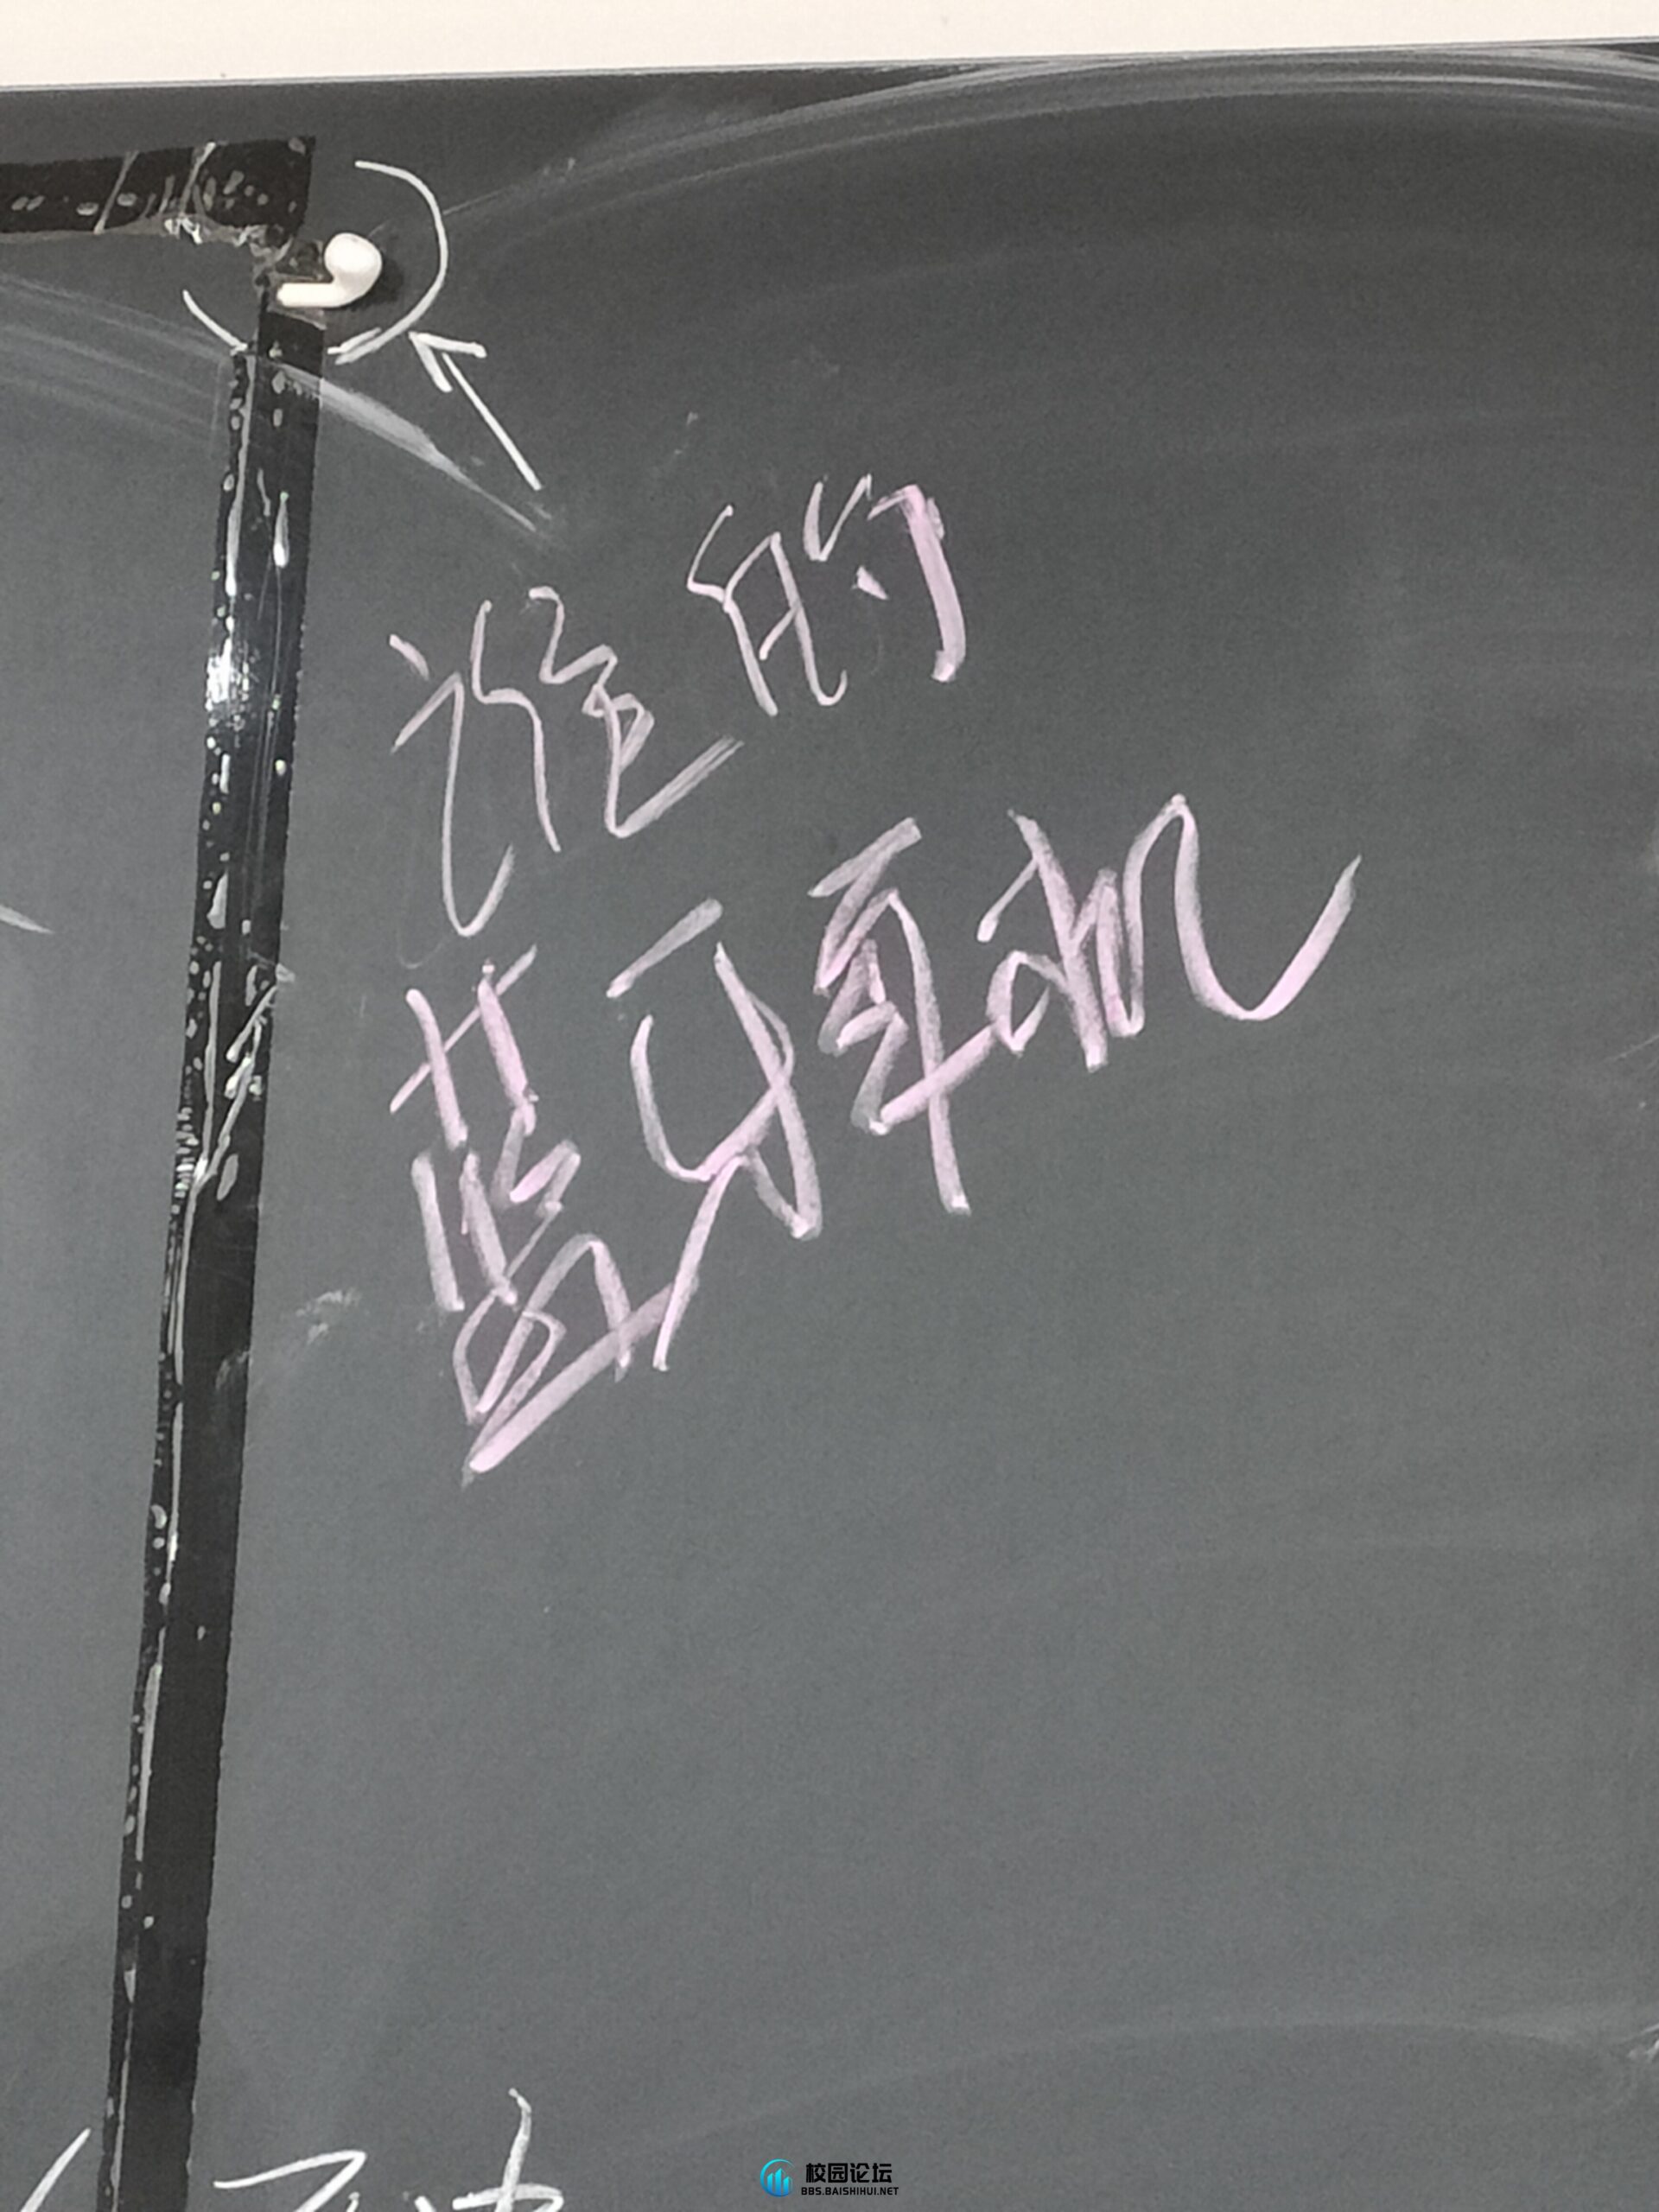 谁的
蓝牙耳机
校园论坛
BBS.BAISHIHUI.NET